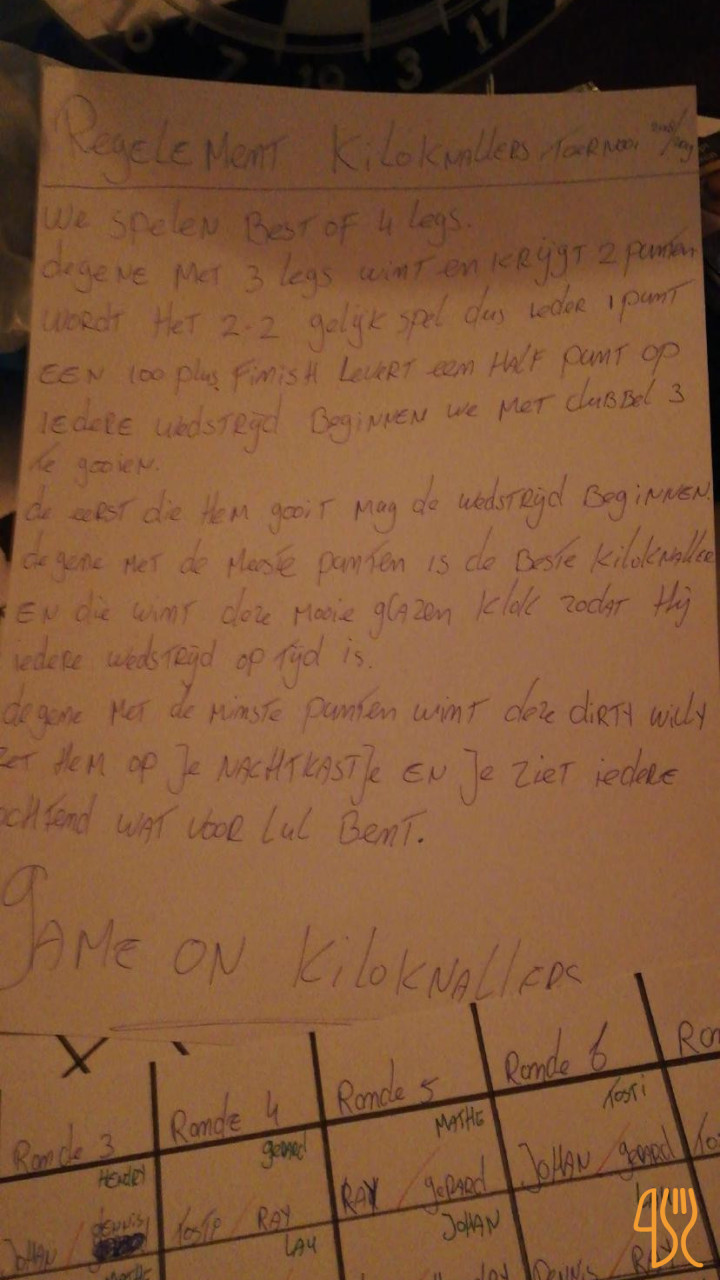 7 19 3 17
Regelement Kiloknallers Toernooi
We spelen Best of 4 legs.
degene met 3 legs wint en krijgt 2 punten
wordt het 2-2 gelijk spel dus ieder 1 punt
een 100 plus finish levert een half punt op
iedere wedstrijd beginnen we met dubbel 3
te gooien.
de eerst die hem gooit mag de wedstrijd beginnen.
degene met de meeste punten is de beste kiloknaller
en die wint deze mooie glazen klok zodat hij
iedere wedstrijd op tijd is.
degene met de minste punten wint deze dirty willy
zet hem op je nachtkastje en je ziet iedere
ochtend wat voor lul bent.
Game on Kiloknallers
Ronde 3 Ronde 4 Ronde 5 Ronde 6 Ron
Henry gerard Mathe Tosti
Johan / dennis Tosti / Ray Ray / gerard Johan / gerard
Mathe Lau Johan
Dennis / Ray